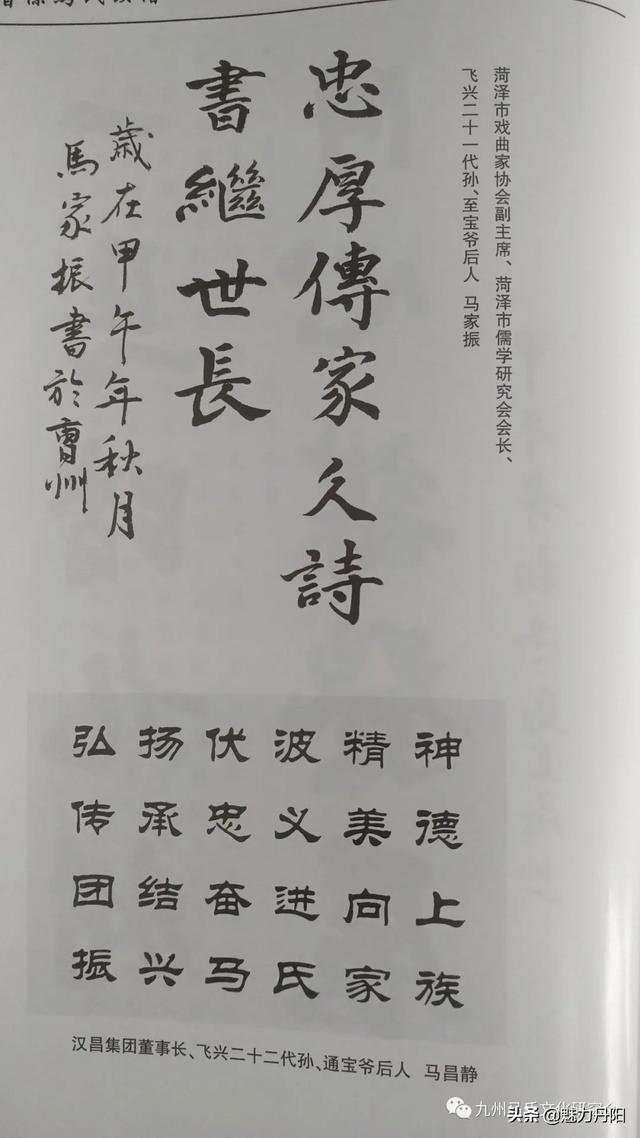 菏泽市戏曲家协会副主席、菏泽市儒学研究会会长、
飞兴二十一代孙、至宝爷后人 马家振
忠厚傳家久詩
書繼世長
歲在甲午年秋月
馬家振書於曹州
弘扬伏波精神
传承忠义美德
团结奋进向上
振兴马氏家族
汉昌集团董事长、飞兴二十二代孙、通宝爷后人 马昌静
九州马氏文化研究会
头条 @魅力丹阳